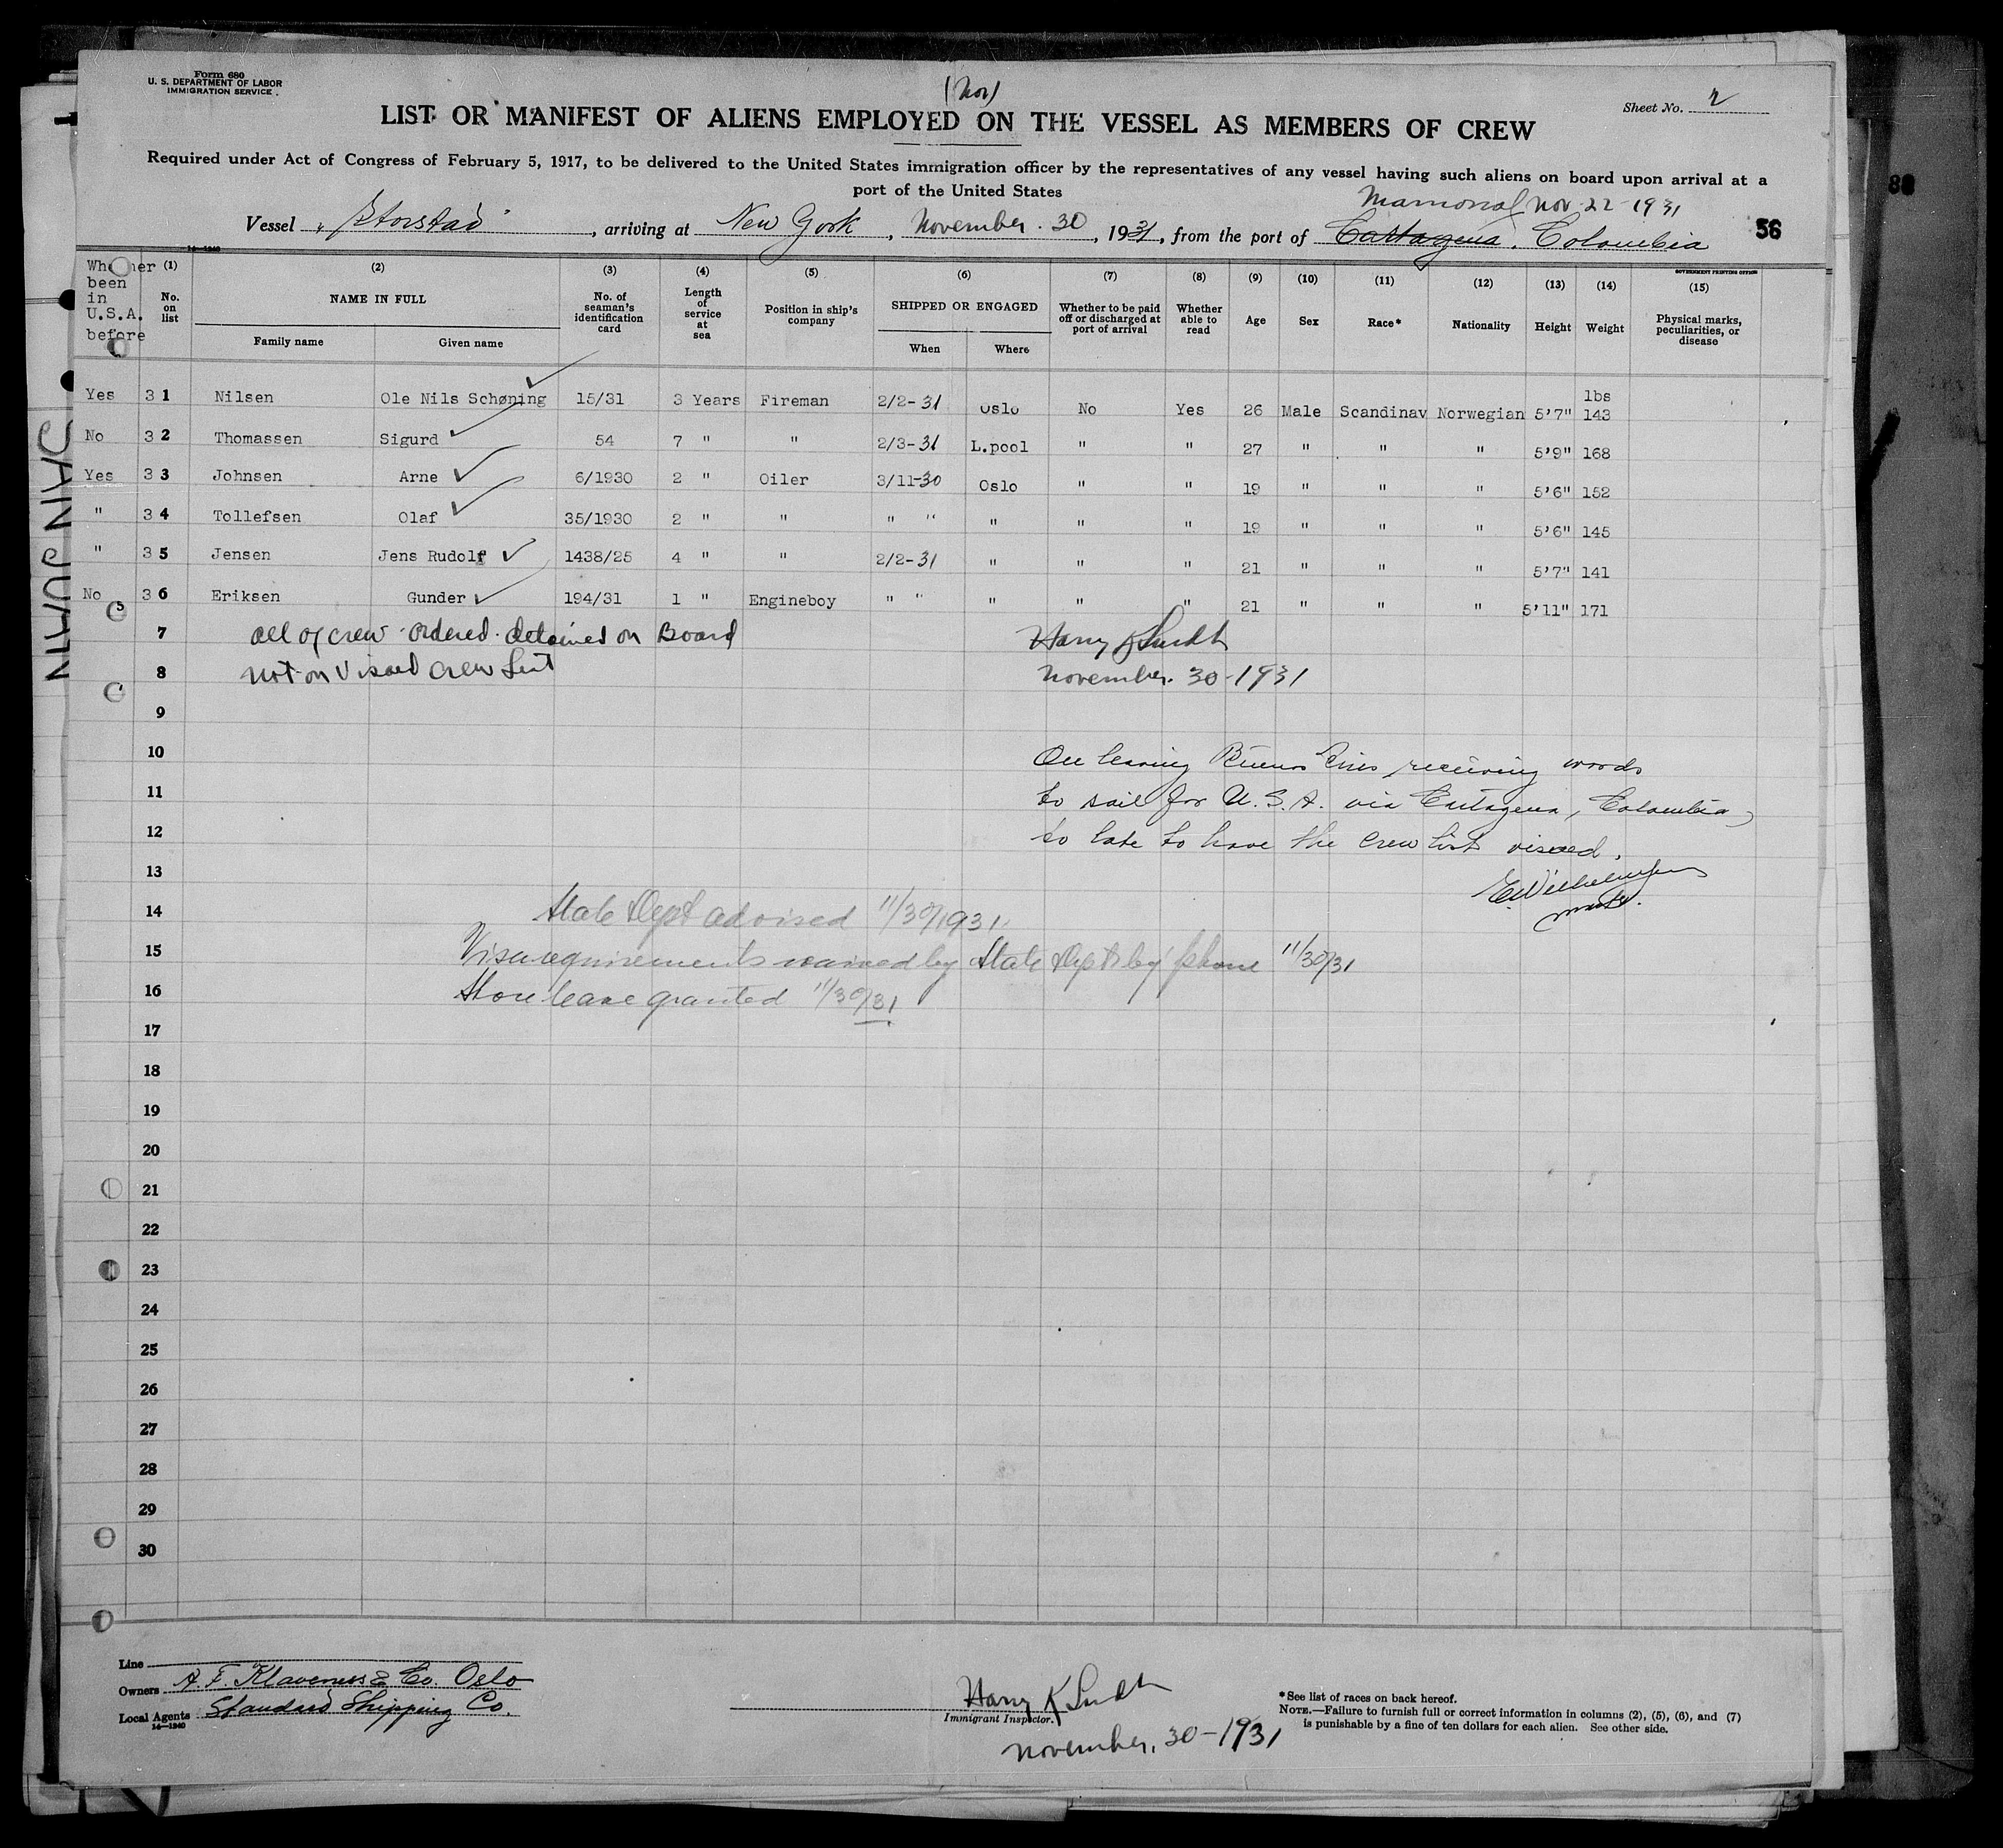 Form 680
U. S. DEPARTMENT OF LABOR
IMMIGRATION SERVICE
(Nor)
Sheet No. 2
LIST OR MANIFEST OF ALIENS EMPLOYED ON THE VESSEL AS MEMBERS OF CREW
Required under Act of Congress of February 5, 1917, to be delivered to the United States immigration officer by the representatives of any vessel having such aliens on board upon arrival at a
port of the United States
Mamonal Nov 22-1931
Vessel "Storstad", arriving at New York, November 30, 1931, from the port of Cartagena, Colombia
56
14-1240
GOVERNMENT PRINTING OFFICE
Whether been in U.S.A. before (1) No. on list (2) NAME IN FULL Family name Given name (3) No. of seaman's identification card (4) Length of service at sea (5) Position in ship's company (6) SHIPPED OR ENGAGED When Where (7) Whether to be paid off or discharged at port of arrival (8) Whether able to read (9) Age (10) Sex (11) Race* (12) Nationality (13) Height (14) Weight (15) Physical marks, peculiarities, or disease
Yes 3 1 Nilsen Ole Nils Schøning 15/31 3 Years Fireman 2/2-31 Oslo No Yes 26 Male Scandinav Norwegian 5'7" lbs 143
No 3 2 Thomassen Sigurd 54 7 " " 2/3-31 L.pool " " 27 " " " 5'9" 168
Yes 3 3 Johnsen Arne 6/1930 2 " Oiler 3/11-30 Oslo " " 19 " " " 5'6" 152
" 3 4 Tollefsen Olaf 35/1930 2 " " " " " " " 19 " " " 5'6" 145
" 3 5 Jensen Jens Rudolf 1438/25 4 " " 2/2-31 " " " 21 " " " 5'7" 141
No 3 6 Eriksen Gunder 194/31 1 " Engineboy " " " " " 21 " " " 5'11" 171
7 all of crew ordered detained on Board Harry K
8 not on Visaed Crew List November. 30-1931
9
10 On leaving Buenos Aires receiving words
11 to sail for U.S.A. via Cartagena, Colombia,
12 to late to have the crew list visaed.
13 E. Wilhelmsen
master.
14 State Dept advised 11/30/1931
15 Visa requirements waived by State Dept by phone 11/30/31
16 Shore leave granted 11/30/31
17
18
19
20
21
22
23
24
25
26
27
28
29
30
Line
Owners A. F. Klaveness & Co. Oslo
Local Agents Standard Shipping Co.
14-1240
Harry K
Immigrant Inspector.
November, 30-1931
*See list of races on back hereof.
NOTE.—Failure to furnish full or correct information in columns (2), (5), (6), and (7)
is punishable by a fine of ten dollars for each alien. See other side.